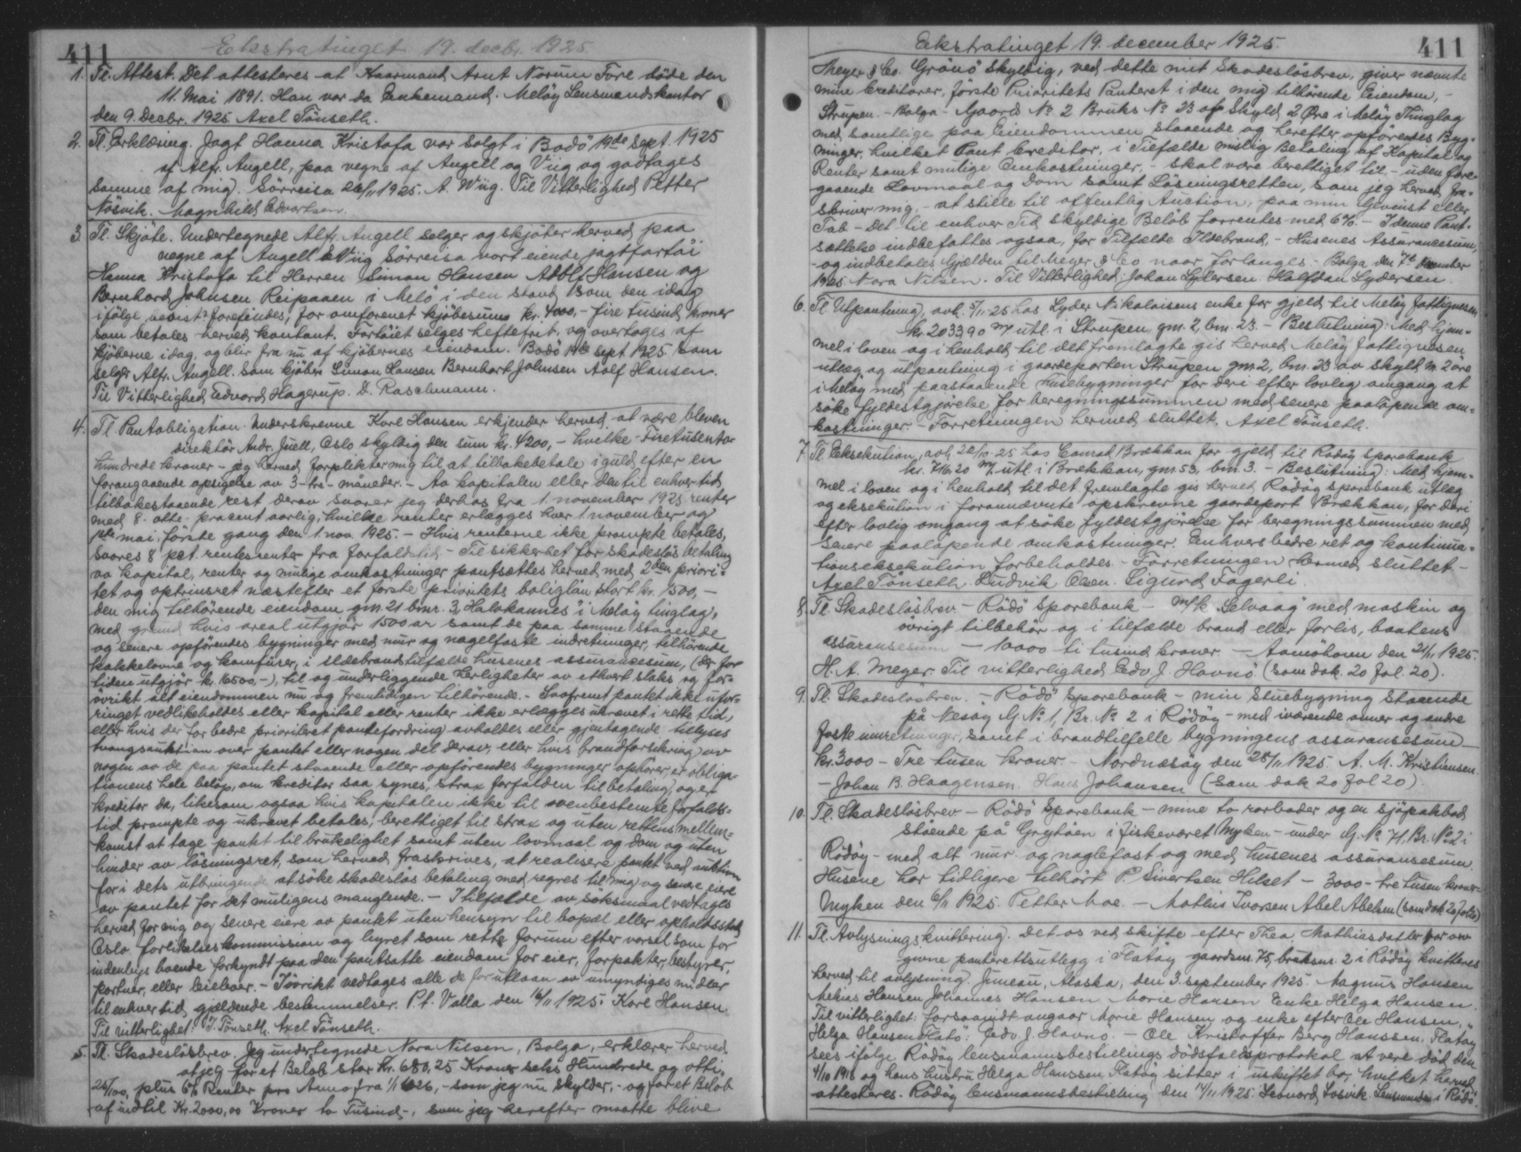 411
Ekstratinget 19. decbr. 1925
1. Tl. Attest. Det attesteres at Kaarmand Arnt Norum Fore døde den
11. Mai 1891. Han var da Enkemand. Meløy Lensmandskontor
den 9. Decbr. 1925 Axel Tönseth.
2. Tl. Erklæring. Jagt Hanna Kristofa var solgt i Bodö 14de Sept. 1925
af Alfr. Angell, paa vegne af Angell og Viig og godtages
samme af mig. Sörreisa 26/11 1925. A. Wiig. Til Vitterlighed Petter
Nösvik. Magnhild Edvartsen.
3. Tl. Skjøte. Undertegnede Alfr. Angell selger og skjøter herved paa
vegne af Angell & Viig Sörreisa vort eiende jagtfartöi
Hanna Kristofa til Herrer Simon Hansen Adolf Hansen og
Bernhard Johnsen Reipaaen i Melö i den stand som den idag
forefindes, for omforenet kjöbesum kr. 4000,- fire tusind kroner
som betales herved kontant. Fartöiet selges heftefrit og overtages af
kjöberne idag og blir fra nu af kjöbernes eiendom. Bodö 14de sept 1925 som
selger Alfr. Angell. Som kjöber Simon Hansen Bernhart Johnsen Adolf Hansen.
Til Vitterlighed Edvard Hagerup. D. Raschmann.
4. Tl. Pantobligation. Underskrevne Kore Hansen erkjender herved at være bleven
direktör Andr. Juell, Oslo skyldig den sum kr. 4200,- hvilke Firetusento
hundrede kroner - jeg herved forplikter mig til at tilbakebetale i guld efter en
forangaaende opsigelse av 3-tre-maaneder. - Av kapitalen eller den til enhver tid
tilbakestaaende rest derav svarer jeg derhos fra 1. november 1925 renter
med 8. otte. procent aarlig, hvilke renter erlægges hver 1 november og
1ste mai, förste gang den 1. nov. 1925. - Hvis renterne ikke prompte betales,
svares 8 pct. rentesrenter fra forfaldstid - Til sikkerhet for skadeslös betaling
av kapital, renter og mulige omkostninger pantsættes herved med 2den priori-
tet og optrinsret næstefter et förste prioritets boliglån stort kr. 7500,-
den mig tilhörende eiendom gnr. 21 bnr. 3, "Halvkannes" i Meløy tinglag,
med grund hvis areal utgjör 1500 ar samt de paa samme staaende
og senere opförendes bygninger med mur og nagelfaste indretninger, tilhörende
kakkelovne og komfurer, i ildebrandstilfælde husenes assuransesum, (der for
tiden utgjör kr. 16500,-), til og underliggende herligheter av ethvert slags og for-
övrikt alt eiendommen nu og fremtidigen tilhörende. - Saafremt pantet ikke ufor-
ringet vedlikeholdes eller kapital eller renter ikke erlægges ukrævet i rette tid,
eller hvis der for bedre prioritert pantefordring avholdes eller gjentagende tillyses
tvangsauktion over pantet eller nogen del derav, eller hvis brandforsikring av
nogen av de paa pantet staaende eller opförendes bygninger ophörer, er obliga-
tionens hele belöp, om kreditor saa synes, strax forfalden til betaling, og er
kreditor da, likesom ogsaa hvis kapitalen ikke til ovenbestemte forfalds-
tid prompte og ukrævet betales, berettiget til strax og uten rettens mellem-
komst at tage pantet til brukelighet samt uten lovmaal og dom og uten
hinder av lösningsret, som herved fraskrives, at realisere pantet ved auktion
for i dets utbringende at söke skadeslös betaling med regres til mig og senere eiere
av pantet for det muligens manglende. - I tilfælde av söksmaal vedtages
herved for mig og senere eiere av pantet uten hensyn til bopæl eller opholdssted
Oslo forlikelseskommission og byret som rette forum efter varsel som for
indenbys boende forkyndt paa den pantsatte eiendom for eier, forpakter, bestyrer,
portner, eller leieboer. - Iövrikt vedtages alle de for utlaan av umyndiges midler
til enhver tid gjældende bestemmelser. P.t. Valla den 14/11 1925. Kore Hansen
Til vitterlighet: J. Tönseth. Axel Tönseth.
5. Tl. Skadeslösbrev. Jeg undertegnede Nora Nilsen, Bolga, erklærer herved
at jeg for et Belöb stor Kr. 680,25 Kroner seks Hundrede og otti
25/100, plus 6% Renter pro Anno fra 1/1 1926, - som jeg nu skylder, - og for et Belöb
af indtil Kr. 2000,00 Kroner to Tusind -, som jeg herefter maatte blive
Ekstratinget 19. december 1925.
411
Meyer & Co. Grönö skyldig, ved dette mit Skadeslösbrev, giver nævnte
mine Creditorer, förste Prioritets Panteret i den mig tilhörende Eiendom, -
Strupen - Bolga - Gaards No. 2 Bruks No. 23 af Skyld 2 Øre i Melöy Thinglag
med samtlige paa Eiendommen staaende og herefter opförendes Byg-
ninger, hvilket Pant Creditor, i Tilfælde mislig Betaling af Kapital og
Renter samt mulige Omkostninger, - skal være berettiget til - uden fore-
gaaende Lovmaal og Dom samt Lösningsretten, som jeg herved fra-
skriver mig, - at stille til offentlig Auction, paa min Gevinst eller
Tab - det til enhver Tid skyldige Belöb forrentes med 6% - I denne Pant-
sættelse indbefattes ogsaa, for Tilfælde Ildebrand, - Husenes Assurancesum,
- og indbetales Gjælden til Meyer & Co naar forlanges. - Bolga den 7de November
1925 Nora Nilsen. Til Vitterlighed: Johan Sydersen Halfdan Sydersen.
6. Tl Utpantning, avh. 5/11-25 hos Lyder Nikolaisens enke for gjeld til Meløy fattigvesen
kr. 2033.90 m/ utl. i Strupen, gnr. 2, bnr. 23. - Beslutning: Med hjem-
mel i loven og i henhold til det fremlagte gis herved Meløy fattigvesen
utlæg og utpantning i gaardparten Strupen gnr. 2, bnr. 23 av skyld m. 2 öre
i Meløy med paastaaende husebygninger for deri efter lovlig omgang at
söke fyldestgjörelse for beregningssummen med senere paalöpende om-
kostninger. Forretningen hermed sluttet. Axel Tönseth.
7. Tl. Eksekution, avh. 28/10-25 hos Conrad Brækkan for gjeld til Rödöy sparebank
kr. 716.20 m/ utl. i Brækkan, gnr. 53, bnr. 3. - Beslutning: Med hjem-
mel i loven og i henhold til det fremlagte gis herved Rödöy sparebank utlæg
og eksekution i forannævnte opskrevne gaardpart Brækkan, for deri
efter lovlig omgang at söke fyldestgjörelse for beregningssummen med
senere paalöpende omkostninger. Enhvers bedre ret og kontinua-
tionseksekution forbeholdes. - Forretningen hermed sluttet -
Axel Tönseth. Ludvik Olsen. Sigurd Fagerli.
8. Tl. Skadeslösbrev - Rödö Sparebank - m/k "Selvaag" med maskin og
övrigt tilbehör og i tilfælde brand eller forlis, baatens
assuransesum - 10000 ti tusind kroner. - Aamoyhavn den 21/11 1925.
H. A. Meyer. Til vitterlighed Edv. J. Havnö (Sam dok. 20 fol. 20).
9. Tl. Skadeslösbrev. - Rödö Sparebank - min Stuebygning staaende
på Nesöy G. No. 1, Br. No. 2 i Rödöy - med iværende ovner og andre
faste inretninger, samt i brandtilfelle bygningens assuransesum -
kr. 3000 - Tre tusen kroner - Nordnesöy den 28/11 1925. A. M. Kristiansen.
- Johan B. Haagensen. Hans Johansen (Sam dok 20 Fol 20).
10. Tl. Skadeslösbrev - Rödö Sparebank - mine to rorboder og en sjöpakbod
stående på Grytöen i Fiskeværet Myken - under G. No. 71, Br. No. 2 i
Rödöy - med alt mur- og naglefast og med husenes assuransesum.
Husene har tidligere tilhört P. Sivertsen Hilset - 3000 - tre tusen kroner -
Myken den 6/11 1925. Petter Moe. - Mathis Ivarsen Abel Abelsen (Sam dok 20 fol 20)
11. Tl. Avlysningskvittering. Det os ved skifte efter Thea Mathiasdatter for ov-
givne panterettsutlegg i Flatöy gaardsnr. 75, bruksnr. 2 i Rödöy kvitteres
herved til avlysning. Juneau, Alaska, den 3. september 1925. Magnus Hansen
Johannes Hansen Marie Hansen Enke Helga Hansen.
Til vitterlighet: forsaavidt angaar Marie Hansen og enke efter Ole Hansen,
Helga Hansen Flatö: Edv. J. Havnö. - Ole Kristoffer Berg Hanssen, Flatöy
sees ifölge Rödöy lensmannsbestillings dödsfaldsprotokol at være död den
4/10 1918 og hans hustru Helga Hanssen Flatöy sitter i uskiftet bo, hvilket herved
attesteres. Rödöy lensmannsbestilling den 14/11 1925. Leonard Losvik. Lensmann i Rödö.